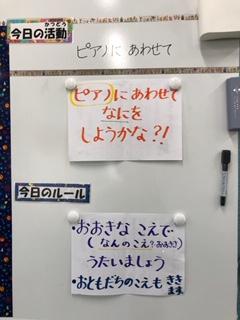 かつどう
今日の活動
ピアノに あわせて
ピアノに あわせて
なにを
しようかな?!
今日のルール
・おおきな こえで
うたいましょう
・おともだちのこえも ききます